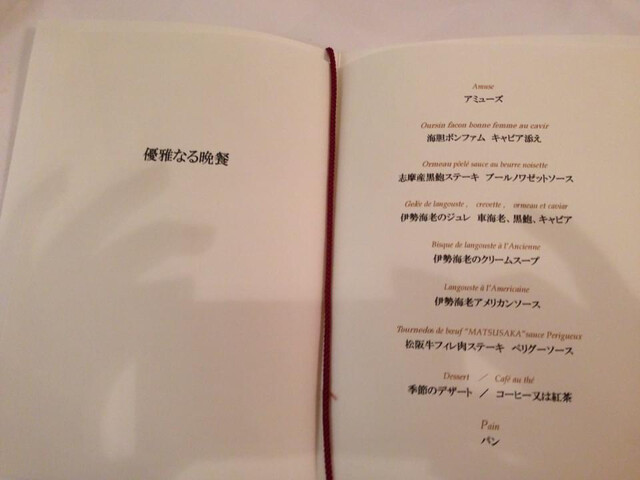 優雅なる晩餐
Amuse
アミューズ
Oursin facon bonne femme au cavir
海胆ボンファム キャビア添え
Ormeau pôelé sauce au beurre noisette
志摩産黒鮑ステーキ ブールノワゼットソース
Gelée de langouste , crevette , ormeau et caviar
伊勢海老のジュレ 車海老、黒鮑、キャビア
Bisque de langouste à l'Ancienne
伊勢海老のクリームスープ
Langouste à l'Americaine
伊勢海老アメリカンソース
Tournedos de bœuf "MATSUSAKA"sauce Perigueux
松阪牛フィレ肉ステーキ ペリグーソース
Dessert ／ Café au thé
季節のデザート ／ コーヒー又は紅茶
Pain
パン